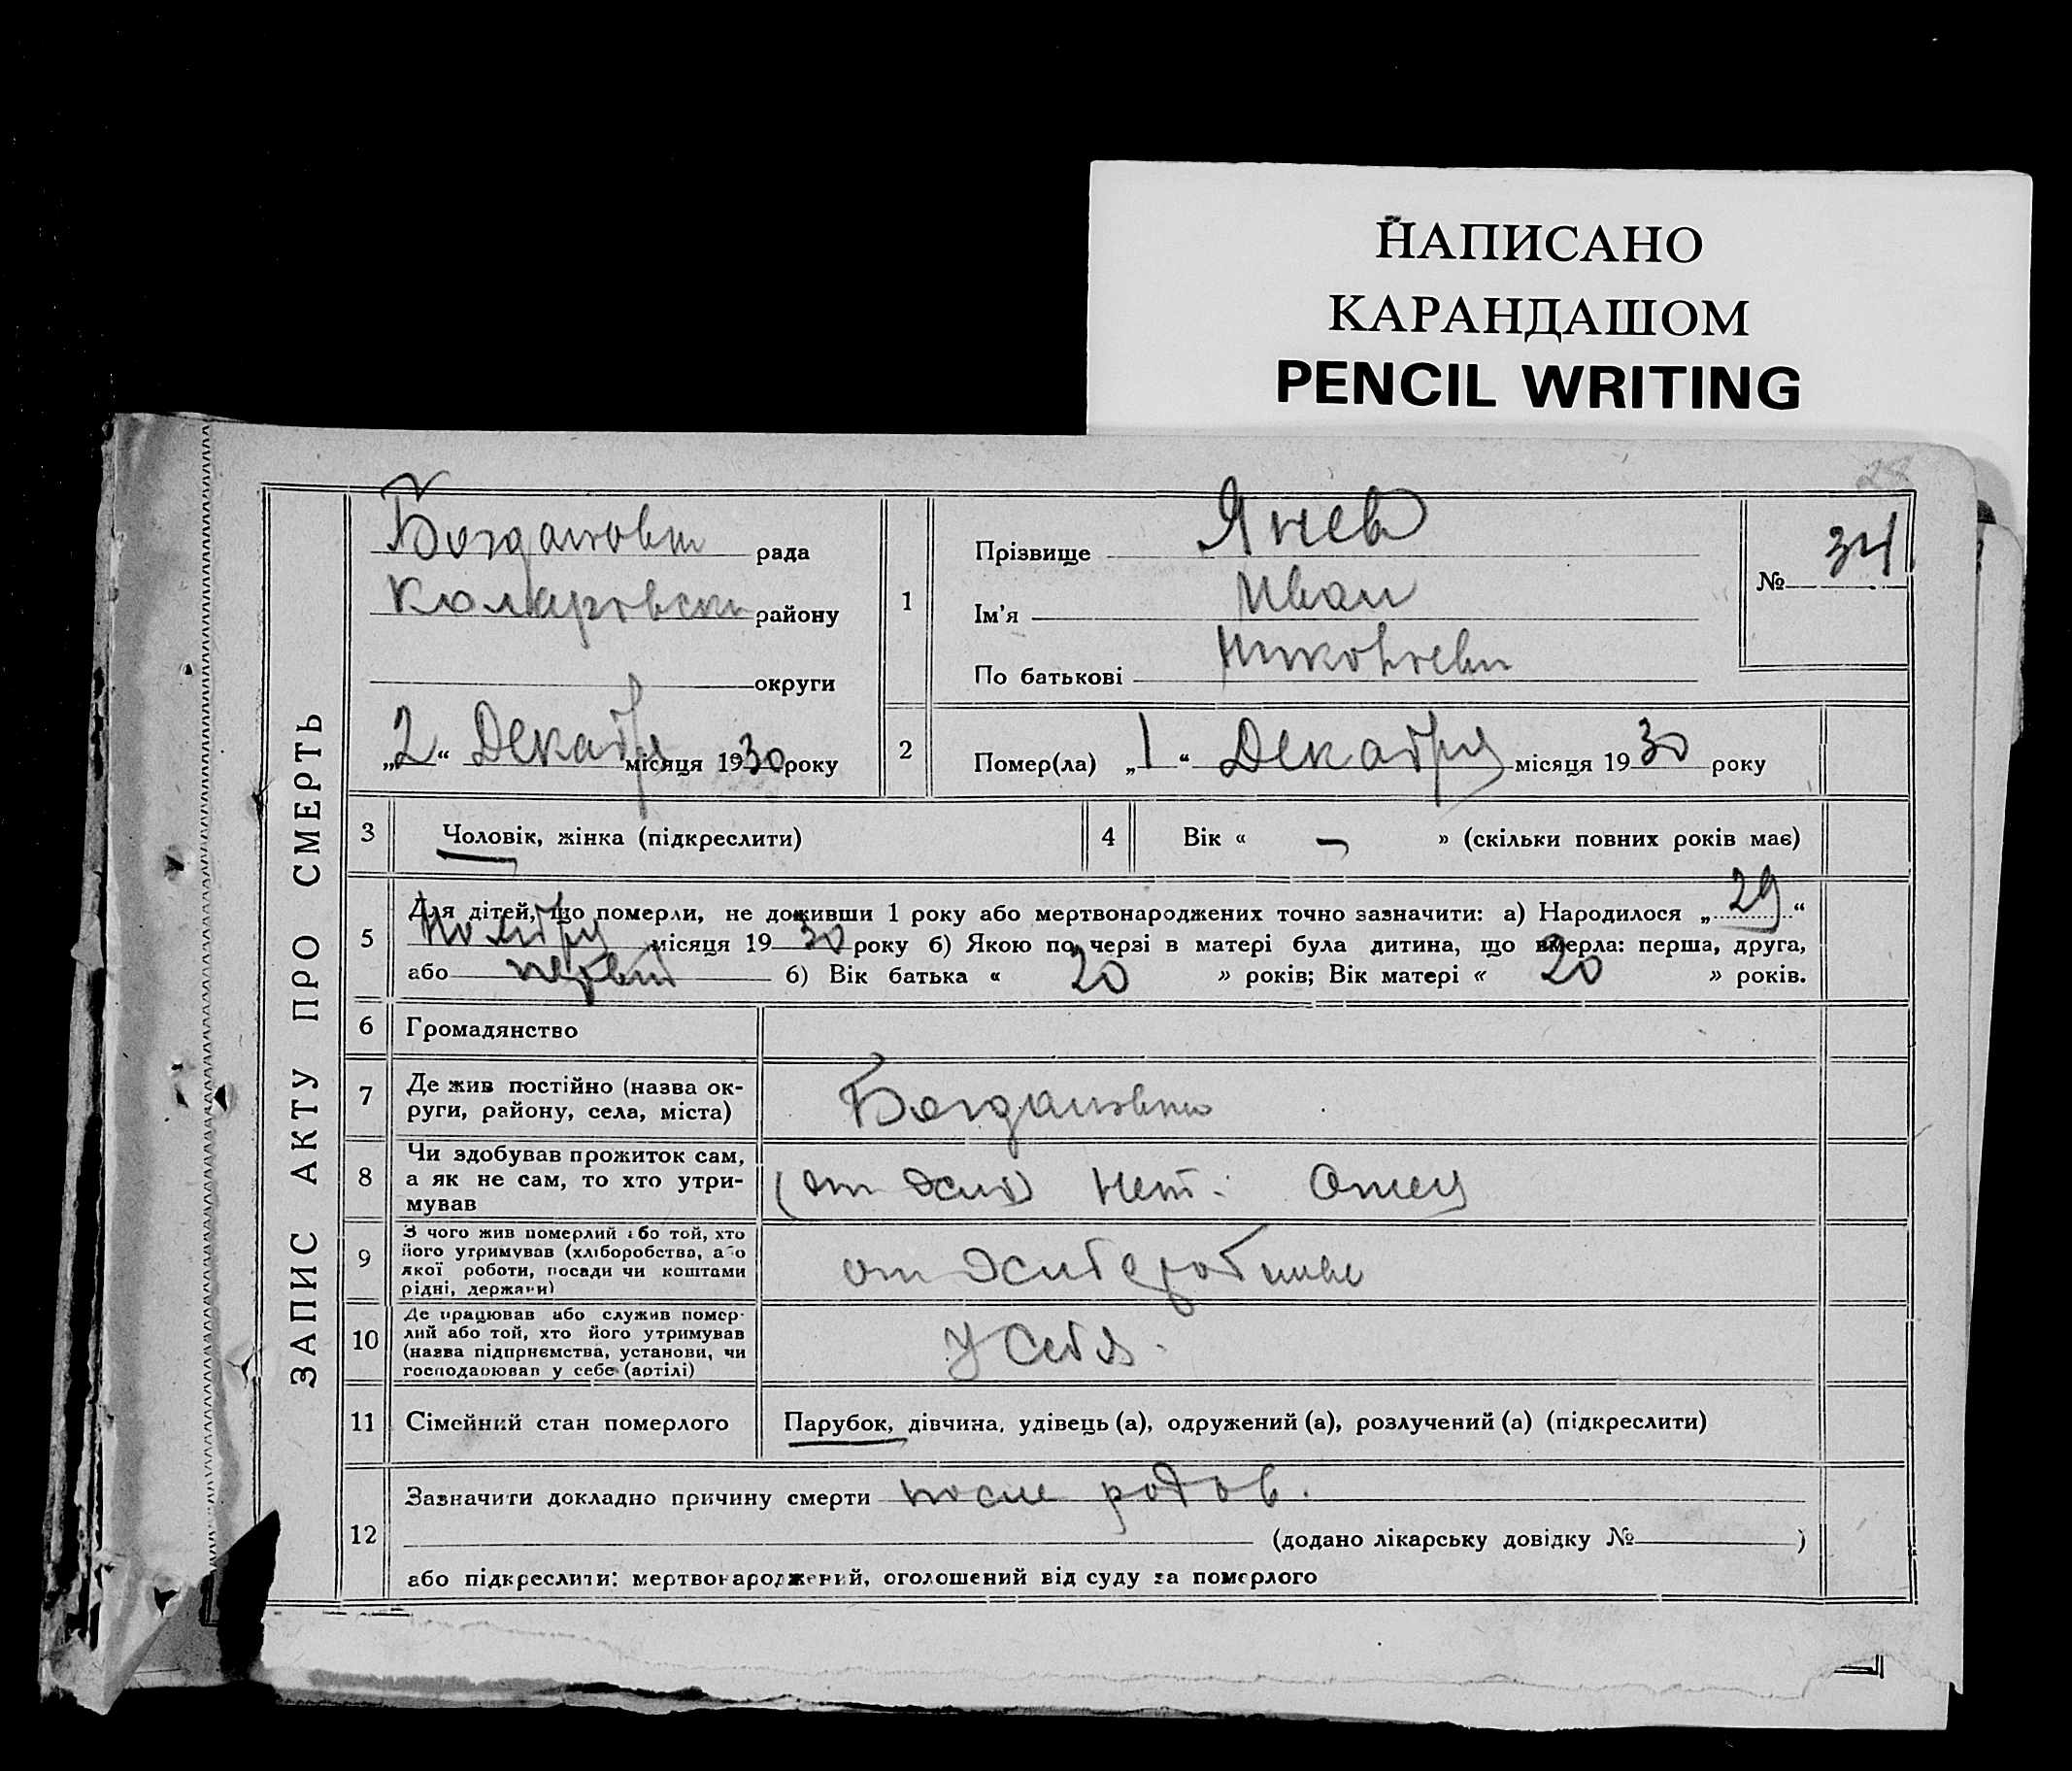 НАПИСАНО
КАРАНДАШОМ
PENCIL WRITING
28
ЗАПИС АКТУ ПРО СМЕРТЬ
Богдановки рада
Коларовски району
округи
„2“ Декабр місяця 1930 року
1
Прізвище Янев
Ім'я Иван
По батькові
№ 34
2
Помер(ла) „1“ Декабря місяця 1930 року
3
Чоловік, жінка (підкреслити)
4
Вік « — » (скільки повних років має)
5
Для дітей, що померли, не доживши 1 року або мертвонароджених точно зазначити: а) Народилося „29“
Ноября місяця 1930 року б) Якою по черзі в матері була дитина, що вмерла: перша, друга,
або первый б) Вік батька « 20 » років; Вік матері « 20 » років.
6
Громадянство
7
Де жив постійно (назва ок-
руги, району, села, міста)
Богдановка
8
Чи здобував прожиток сам,
а як не сам, то хто утри-
мував
нет. Отец
9
З чого жив померлий або той, хто
його утримував (хліборобства, або
якої роботи, посади чи коштами
рідні, держави)
от
10
Де працював або служив помер-
лий або той, хто його утримував
(назва підприємства, установи, чи
господарював у себе (артілі)
У себя.
11
Сімейний стан померлого
Парубок, дівчина, удівець (а), одружений (а), розлучений (а) (підкреслити)
12
Зазначити докладно причину смерти после родов.
(додано лікарську довідку № )
або підкреслити: мертвонароджений, оголошений від суду за померлого